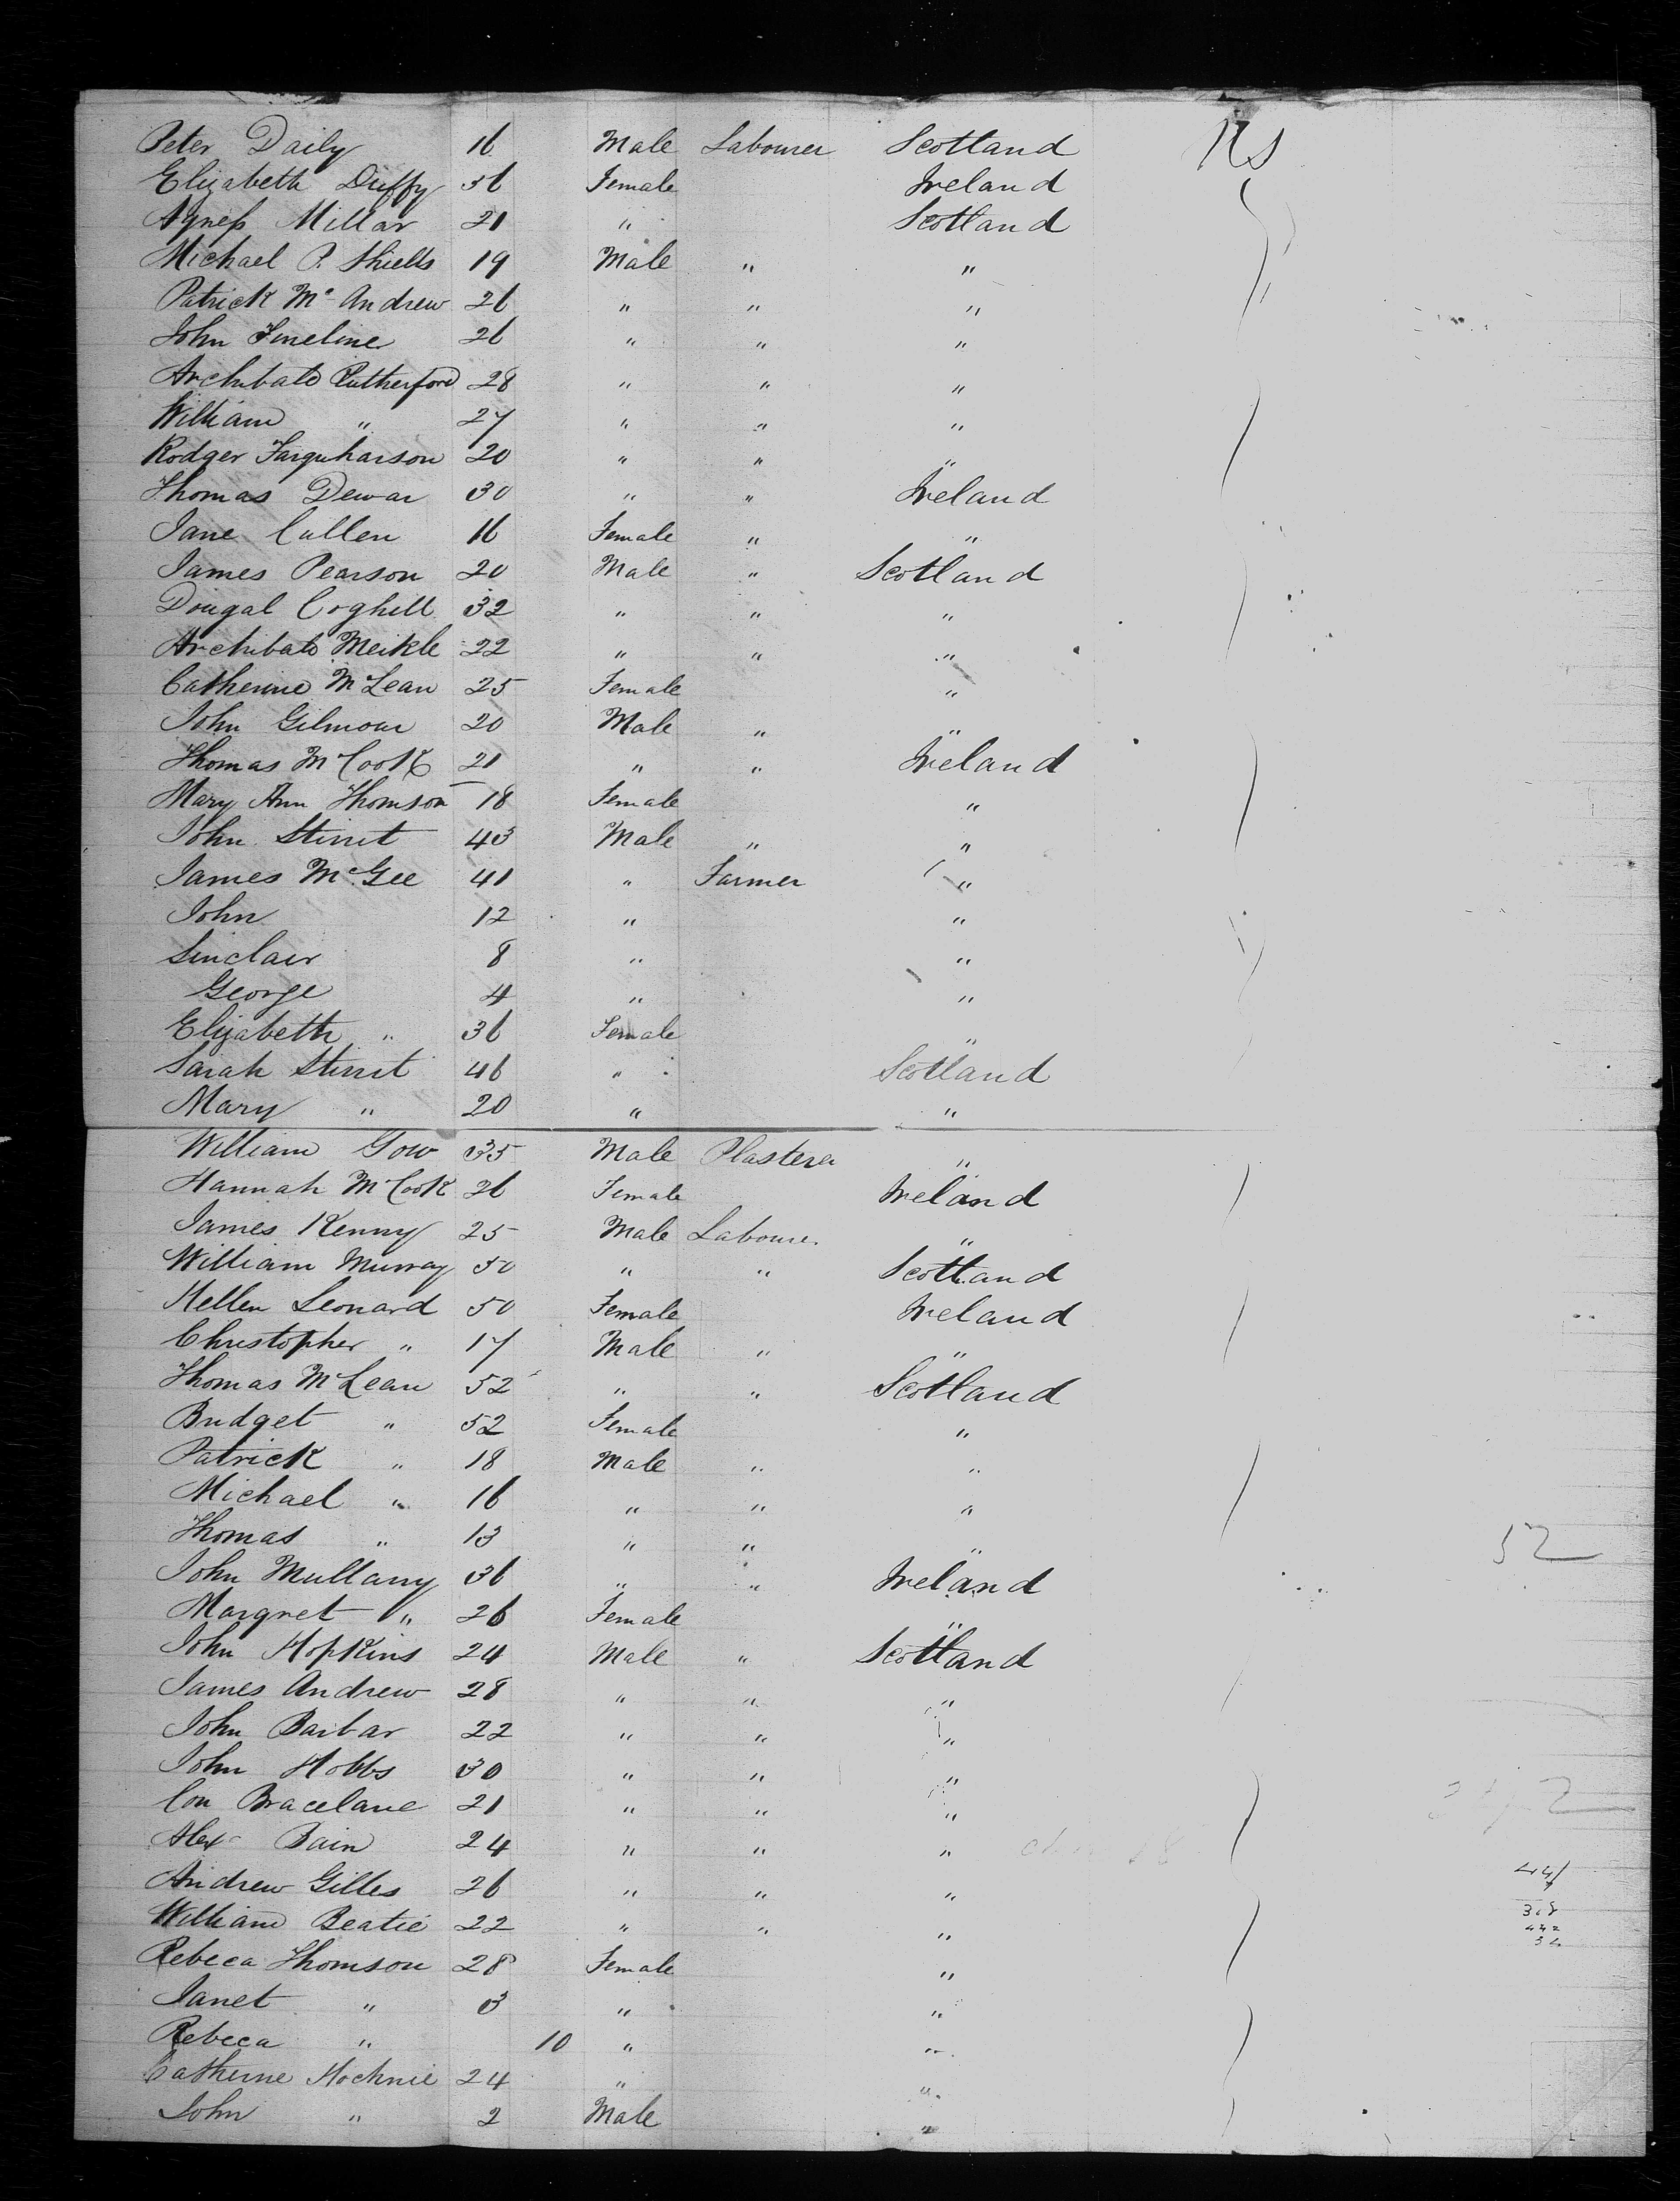 Peter Daily 16 Male Labourer Scotland US
Elizabeth Duffy 36 Female Ireland
Agness Millar 21 " Scotland
Michael P. Shiells 19 Male " "
Patrick Mc Andrew 26 " " "
John Fineline 26 " " "
Archibald Rutherford 28 " " "
William " 27 " " "
Rodger Farquharson 20 " " "
Thomas Dewar 30 " " Ireland
Jane Cullen 16 Female " "
James Pearson 20 Male " Scotland
Dougal Coghill 32 " " "
Archibald Meikle 22 " " "
Catherine McLean 25 Female "
John Gilmour 20 Male " "
Thomas McCook 21 " " Ireland
Mary Ann Thomson 18 Female "
John Stirrit 43 Male " "
James McGee 41 " Farmer "
John 12 " "
Sinclair 8 " "
George 4 " "
Elizabeth " 36 Female "
Sarah Stirrit 46 " Scotland
Mary " 20 " "
William Gow 35 Male Plasterer "
Hannah McCook 26 Female Ireland
James Kenny 25 Male Labourer "
William Murray 50 " " Scotland
Hellen Leonard 50 Female Ireland
Christopher " 17 Male " "
Thomas McLean 52 " " Scotland
Bridget " 52 Female "
Patrick " 18 Male " "
Michael " 16 " " "
Thomas " 13 " " " 52
John Mullany 36 " " Ireland
Margret " 26 Female "
John Hopkins 24 Male " Scotland
James Andrew 28 " " "
John Barbar 22 " " "
John Hobbs 30 " " "
Con Bracelane 21 " " "
Alexr Bain 24 " " "
Andrew Gilles 26 " " "
William Beatie 22 " " "
Rebeca Thomson 28 Female "
Janet " 3 " "
Rebeca " 10 " "
Catherine Hochnie 24 " "
John " 2 Male "